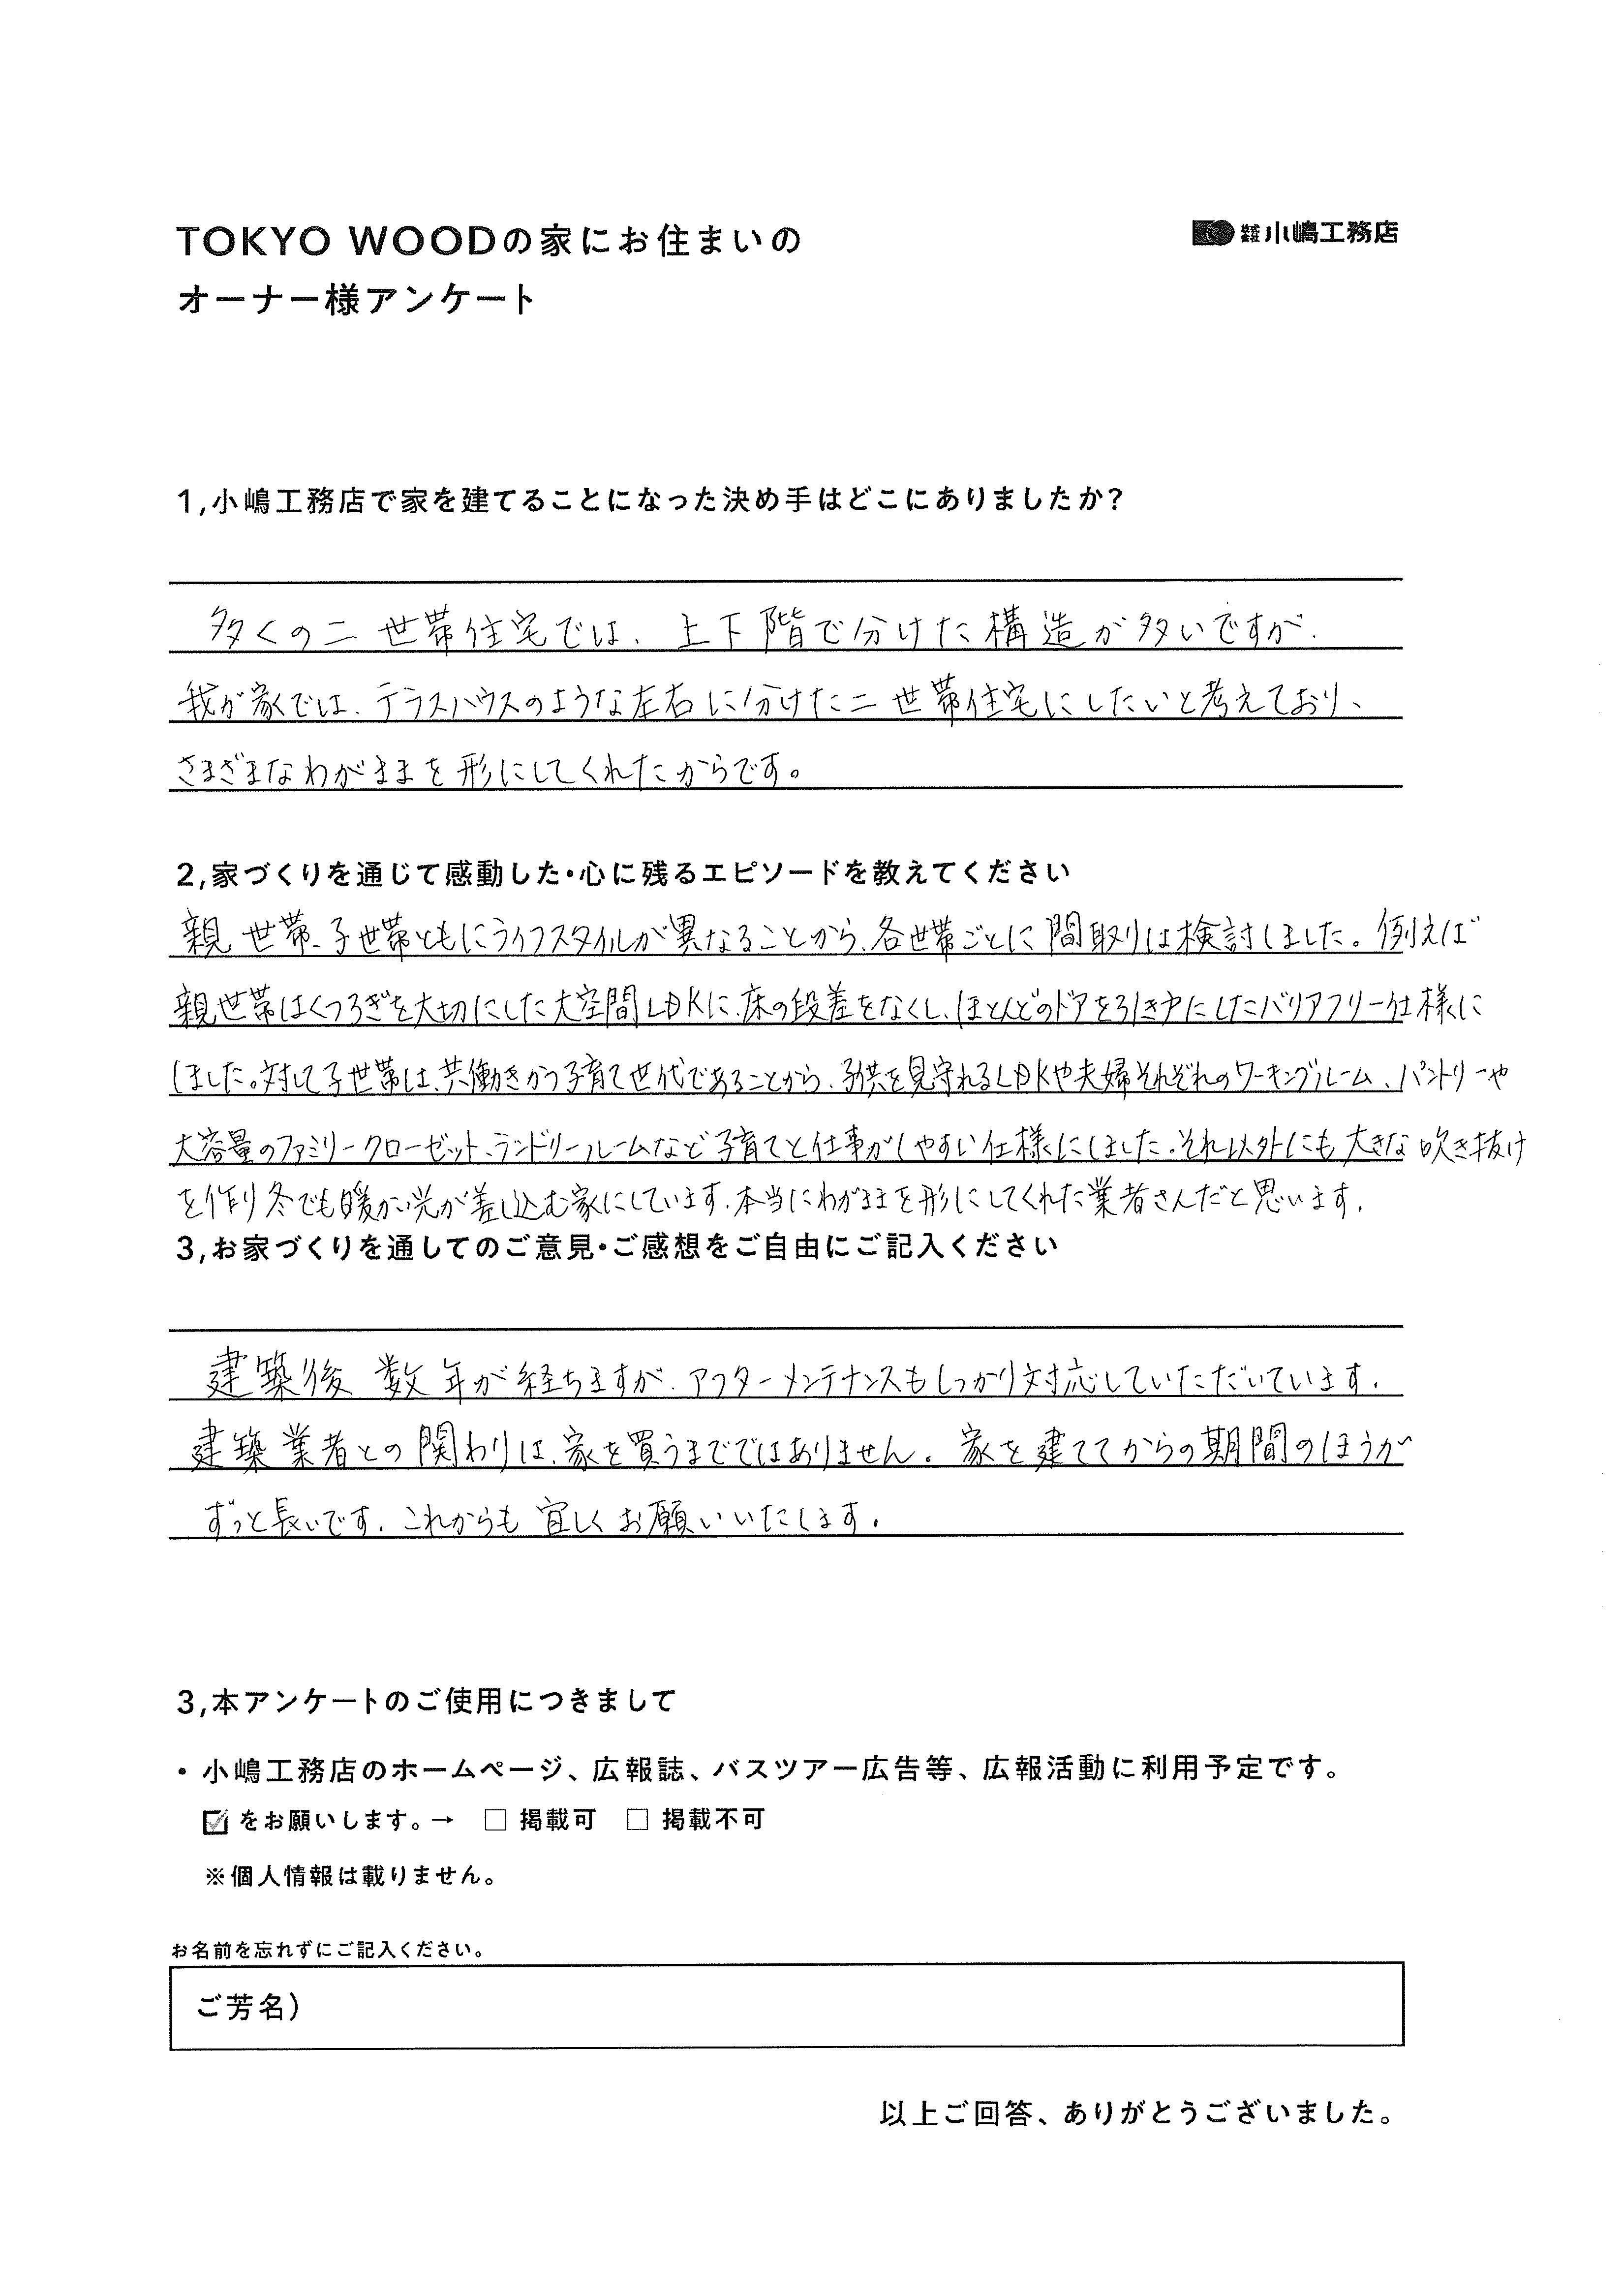 TOKYO WOODの家にお住まいの
株式会社小嶋工務店
オーナー様アンケート
1,小嶋工務店で家を建てることになった決め手はどこにありましたか?
多くの二世帯住宅では、上下階で分けた構造が多いですが、
我が家では、テラスハウスのような左右に分けた二世帯住宅にしたいと考えており、
さまざまなわがままを形にしてくれたからです。
2,家づくりを通じて感動した・心に残るエピソードを教えてください
親世帯、子世帯ともにライフスタイルが異なることから、各世帯ごとに間取りは検討しました。例えば
親世帯はくつろぎを大切にした大空間LDKに、床の段差をなくし、ほとんどのドアを引き戸にしたバリアフリー仕様に
しました。対して子世帯は、共働きかつ子育て世代であることから、子供を見守れるLDKや夫婦それぞれのワーキングルーム、パントリーや
大容量のファミリークローゼット、ランドリールームなど子育てと仕事がしやすい仕様にしました。それ以外にも大きな吹き抜け
を作り冬でも暖かい光が差し込む家にしています。本当にわがままを形にしてくれた業者さんだと思います。
3,お家づくりを通してのご意見・ご感想をご自由にご記入ください
建築後数年が経ちますが、アフターメンテナンスもしっかり対応していただいています。
建築業者との関わりは、家を買うまでではありません。家を建ててからの期間のほうが
ずっと長いです。これからも宜しくお願いいたします。
3,本アンケートのご使用につきまして
・小嶋工務店のホームページ、広報誌、バスツアー広告等、広報活動に利用予定です。
☑をお願いします。→ □ 掲載可 □ 掲載不可
※個人情報は載りません。
お名前を忘れずにご記入ください。
ご芳名)
以上ご回答、ありがとうございました。